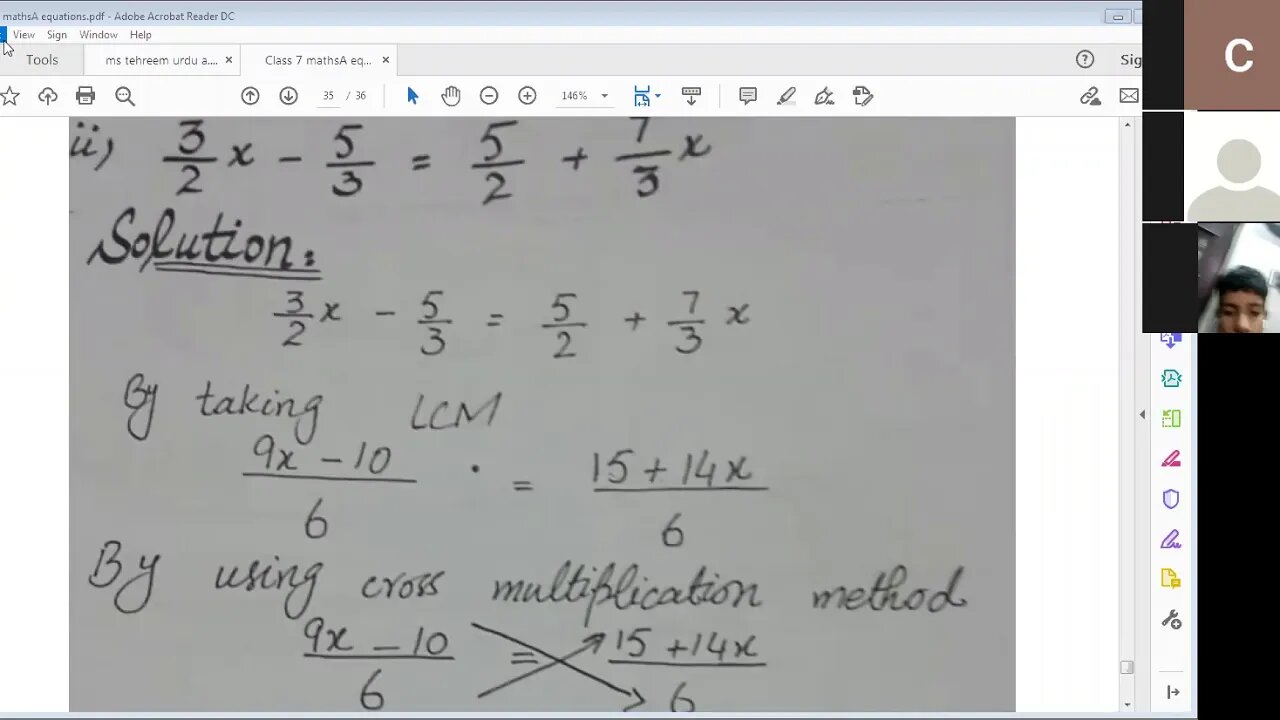 mathsA equations.pdf - Adobe Acrobat Reader DC
View Sign Window Help
Tools ms tehreem urdu a.... × Class 7 mathsA eq... ×
35 / 36 146%
C
ii) 3/2 x - 5/3 = 5/2 + 7/3 x
Solution:
3/2 x - 5/3 = 5/2 + 7/3 x
By taking LCM
9x - 10 / 6 = 15 + 14x / 6
By using cross multiplication method
9x - 10 / 6 = 15 + 14x / 6